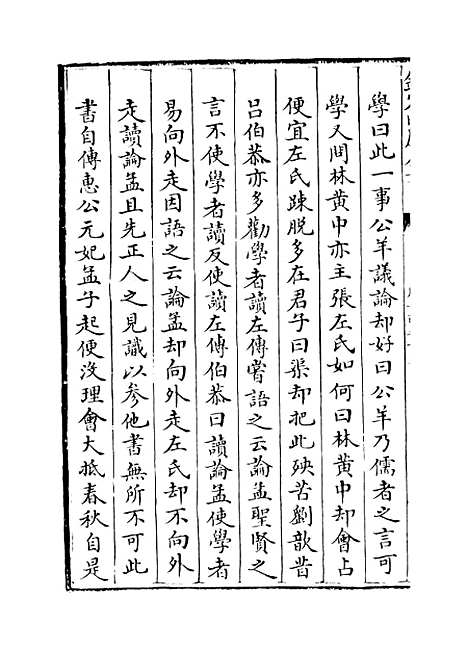 學曰此一事公羊議論却好曰公羊乃儒者之言可
學又問林黄中亦主張左氏如何曰林黄中却會占
便宜左氏踈脱多在君子曰渠却把此殃苦劉歆昔
吕伯恭亦多勸學者讀左傳嘗語之云論孟聖賢之
言不使學者讀反使讀左傳伯恭曰讀論孟使學者
易向外走因語之云論孟却向外走左氏却不向外
走讀論孟且先正人之見識以參他書無所不可此
書自傳惠公元妃孟子起便没理會大抵春秋自是